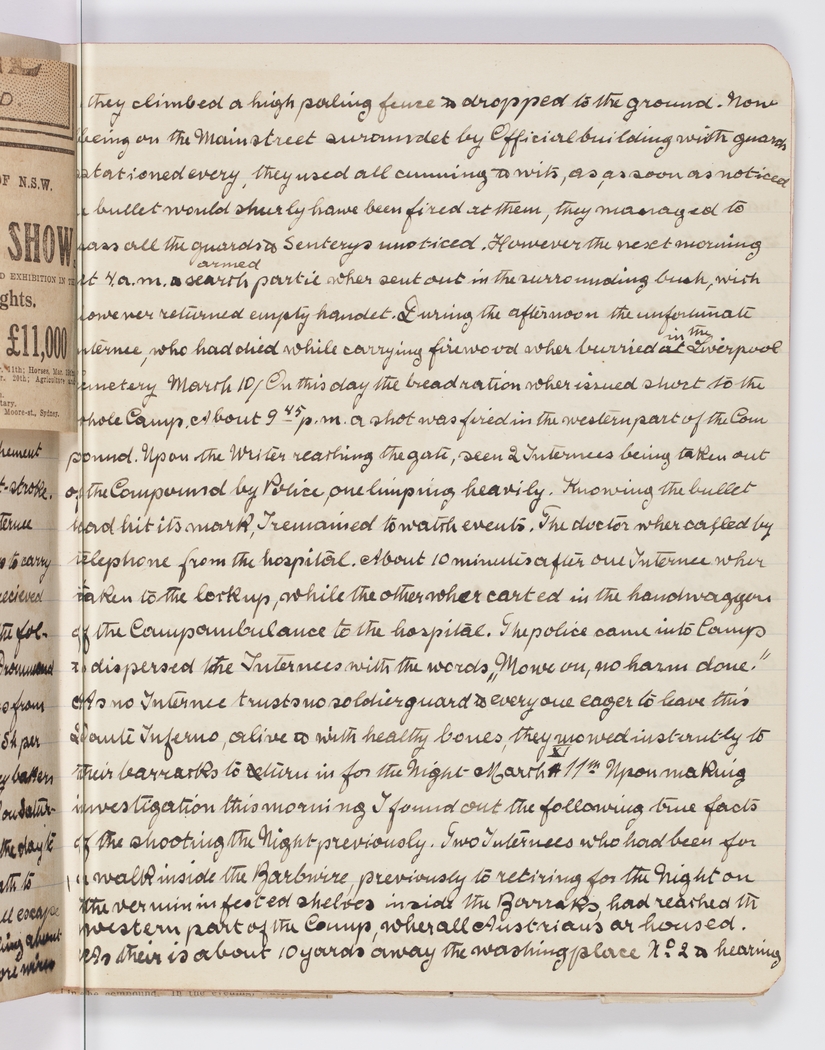 D.
OF N.S.W.
SHOW.
D EXHIBITION IN
ghts.
£11,000
Moore-st., Sydney.
t-stroke.
ternee
to carry
recieved
the fol-
s from
5h per
the day to
all escape
ling about
they climbed a high paling fence & dropped to the ground. Now
being on the Mainstreet suroundet by Official building with guards
stationed every, they used all cunning & wits, as, as soon as noticed
a bullet would shurly hawe been fired at them, they managed to
pass all the guards & Senterys unoticed. However the nexet morning
at 4 a.m. a armed search partie wher sent out in the surrounding bush, wich
however returned empty handet. During the afternoon the unfortunate
internee, who had died while carrying firewood wher burried at in the Liverpool
cemetery March 10/ On this day the breadration wher issued short to the
whole Camp. About 9 45 p.m. a shot was fired in the western part of the Com
pound. Upon the Writer reaching the gate, seen 2 Internees being taken out
of the Compound by Police, one limping heavily. Knowing the bullet
had hit its mark, I remained to watch events. The doctor wher called by
telephone from the hospital. About 10 minutes after one Internee wher
taken to the lock up, while the other wher carted in the handwaggon
of the Campambulance to the hospital. The police came into Camp
& dispersed the Internees with the words „Mowe on, no harm done."
As no Internee trusts no soldierguard & everyone eager to leave this
Dante Inferno, alive & with healthy bones, they mowed instantly to
their barracks to return in for the Night March XI 11th Upon making
investigation this morning I found out the following true facts
of the shooting the Night previously. Two Internees who had been for
a walk inside the Barbwire, previously to retiring for the Night on
the vermin infested shelves inside the Barraks, had reached th
western part of the Camp, wher all Austrians ar housed.
As their is about 10 yards away the washingplace No 2 & hearing